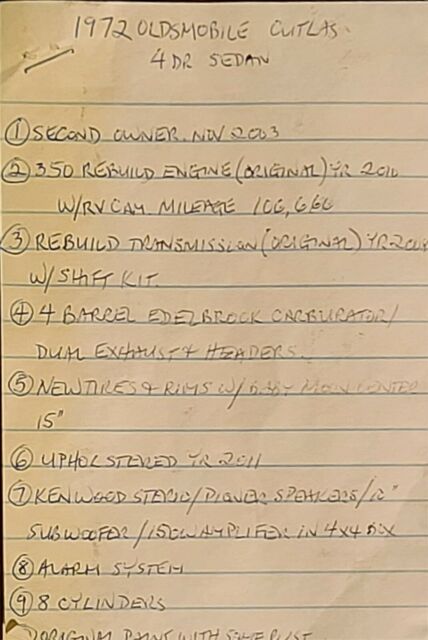 1972 OLDSMOBILE CUTLAS
4 DR SEDAN
① SECOND OWNER. NOV 2003
② 350 REBUILD ENGINE (ORIGINAL) YR 2010
W/RV CAM. MILEAGE 106,660
③ REBUILD TRANSMISSION (ORIGINAL) YR 2008
W/ SHIFT KIT.
④ 4 BARREL EDELBROCK CARBURATOR/
DUAL EXHAUST & HEADERS.
⑤ NEW TIRES & RIMS W/ BABY MOON CENTER
15"
⑥ UPHOLSTERED YR 2011
⑦ KENWOOD STEREO/PIONER SPEAKERS/12"
SUBWOOFER/1500W AMPLIFER IN 4x4 BOX
⑧ ALARM SYSTEM
⑨ 8 CYLINDERS
ORIGINAL PAINT WITH SOME RUST